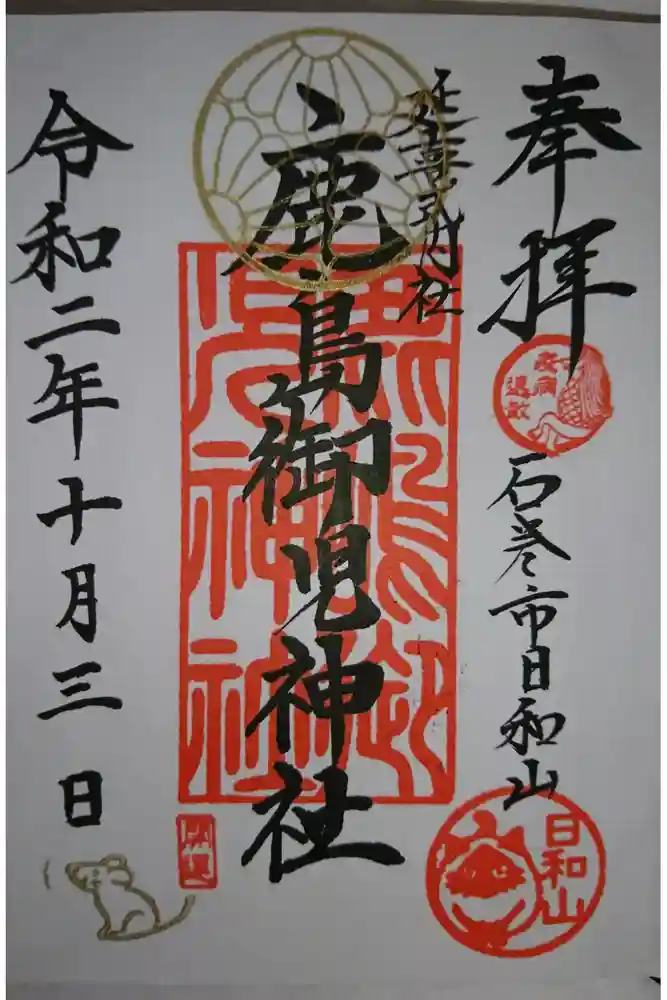 奉拝
疫病退散
石巻市日和山
日和山
延喜式内社
鹿島御児神社
鹿島御児神社
令和二年十月三日